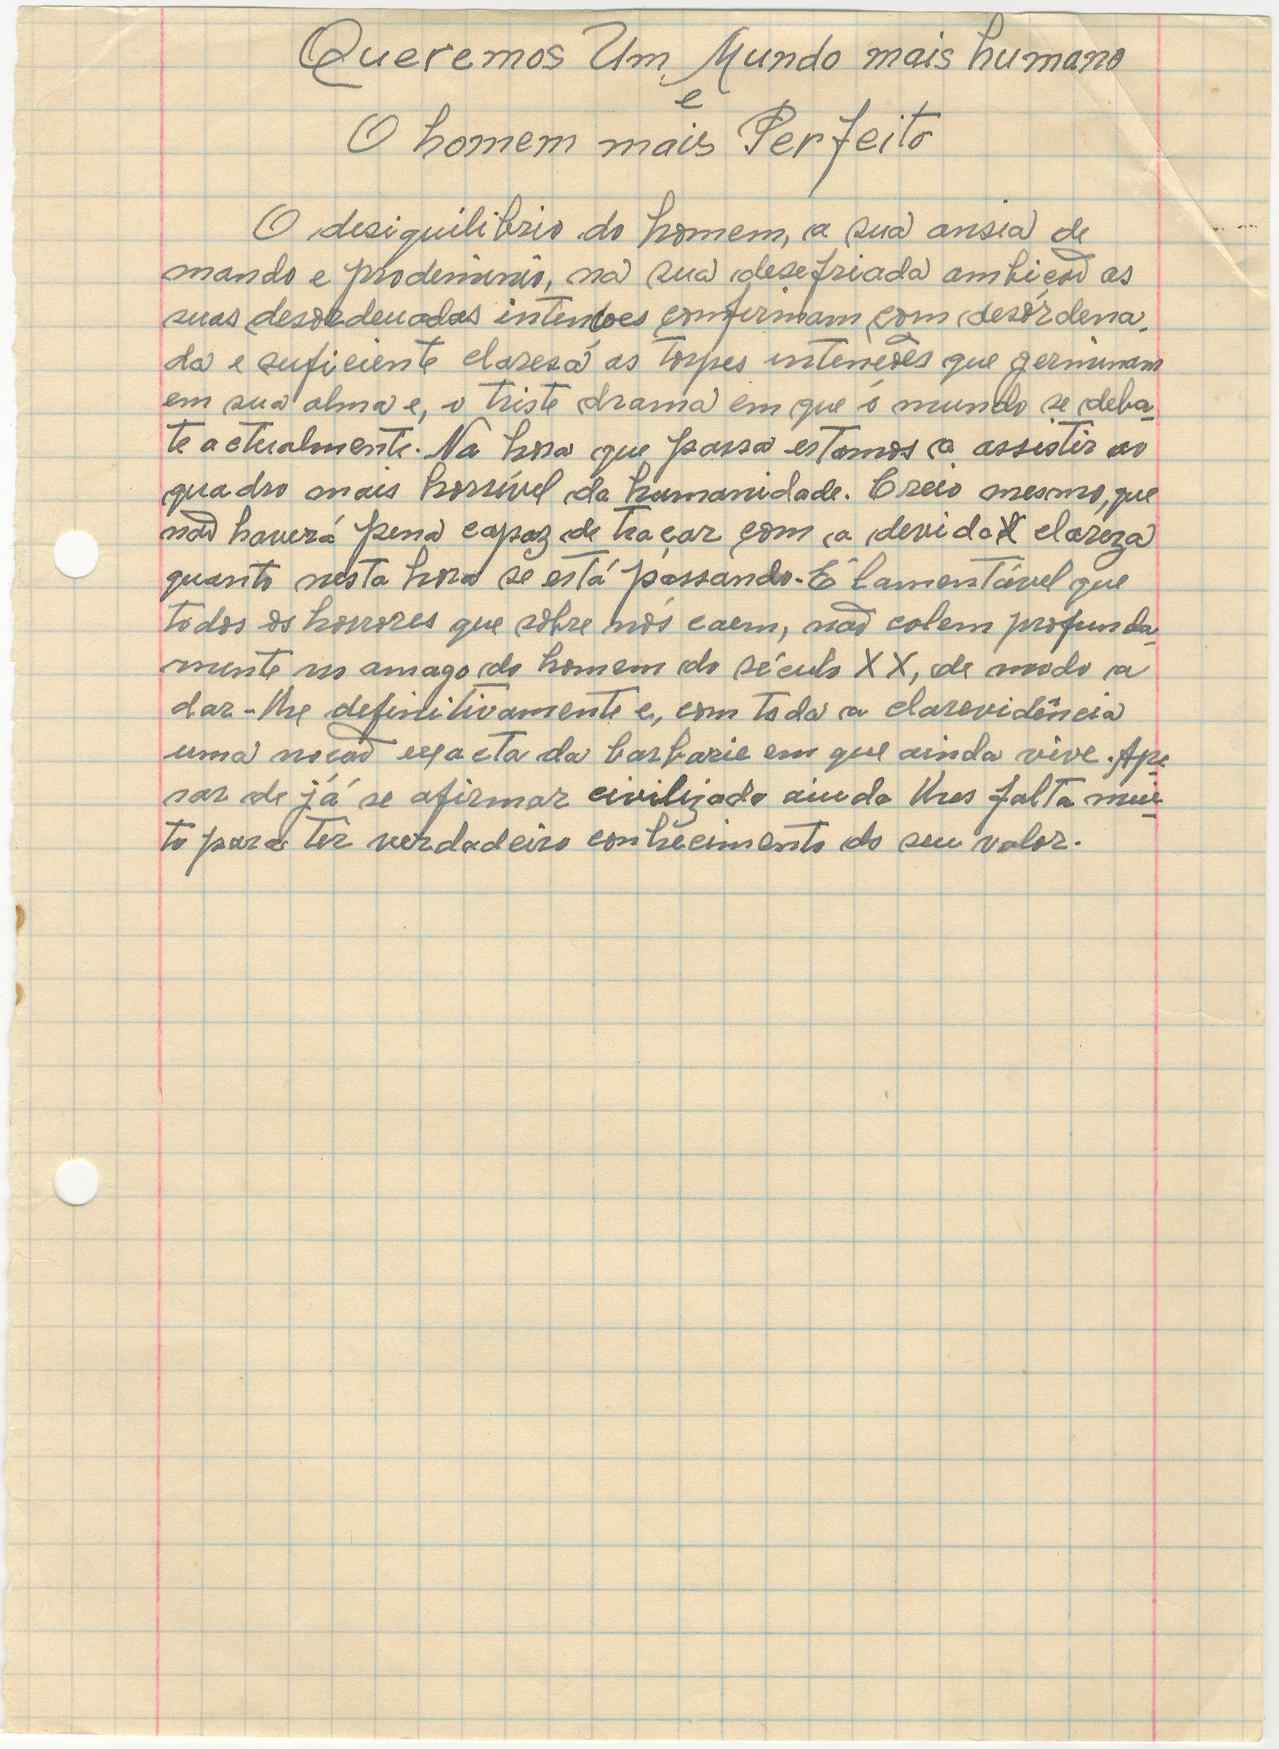 Queremos Um Mundo mais humano
e
O homem mais Perfeito
O desiquilibrio do homem, a sua ansia de
mando e prodeminio, na sua desefriada ambiçaõ as
suas desordenadas intencões confirmam com desórdena-
da e suficiente claresá as torpes intenções que germinam
em sua alma e, o triste drama em que o mundo se deba-
te actualmente. Na hora que passa estamos a assistir ao
quadro mais horrível da humanidade. Creio mesmo, que
naõ haverá pena capaz de traçar com a devida clareza
quanto nesta hora se está passando. É lamentável que
todos os horrores que sôbre nós caem, naõ calem profunda-
mente no amago do homem do século XX, de modo a
dar-lhe definitivamente e, com toda a clarevidência
uma nocaõ exacta da barbarie em que ainda vive. Ape-
sar de já se afirmar civilizado ainda lhes falta mui-
to para têr verdadeiro conhecimento do seu valor.